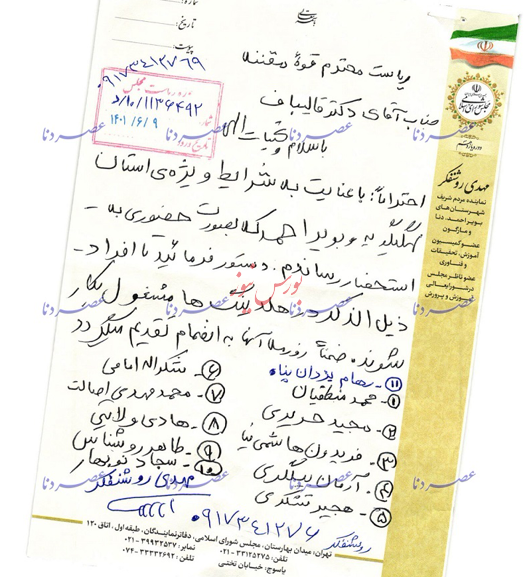 شماره:
تاریخ:
پیوست:
باسمه تعالی
ریاست محترم قوهٔ مقننه
جناب آقای دکتر قالیباف
باسلام و تحیات الهی
احتراماً؛ باعنایت به شرایط ویژه‌ی استان
کهگیلویه و بویراحمد که بصورت حضوری به
استحضار رساندم. دستور فرمائید تا افراد
ذیل الذکر در هلدینگ‌ها مشغول بکار
شوند. ضمناً رزومهٔ آنها به انضمام تقدیم میگردد
۱۱- رهام یزدان پناه
۱- حمد منطقیان
۲- مجید حریری
۳- فریدون هاشمی نیا
۴- آرمان بیگلری
۵- هجیر تشکری
۶- شکراله امامی
۷- محمدمهدی اصالت
۸- هادی ولایتی
۹- طاهر روشناس
۱۰- سجاد نوبهار
مهدی روشنفکر
روشنفکر
۰۹۱۷۳۴۱۲۷۶
۰۹۱۷۳۴۱۲۷۶۹
ورود ریاست مجلس
شماره
د/۱۰/۱۱۳۶۴۹۲
۱۴۰۱/۶/۹
تاریخ ورود
مجلس شورای اسلامی
دوره یازدهم
مهدی روشنفکر
نماینده مردم شریف
شهرستان‌های
بویراحمد، دنا
و مارگون
عضو کمیسیون
آموزش، تحقیقات
و فناوری
عضو ناظر مجلس
در شورای عالی
آموزش و پرورش
تهران، میدان بهارستان، مجلس شورای اسلامی، دفاتر نمایندگان، طبقه اول، اتاق ۱۲۰
تلفن: ۳۳۱۲۵۲۷۵-۰۲۱ نمابر: ۳۹۹۳۲۵۳۷-۰۲۱
یاسوج، خیابان تختی تلفن: ۳۳۳۳۲۶۹۲-۰۷۴
بورس نیوز
عصر دنا